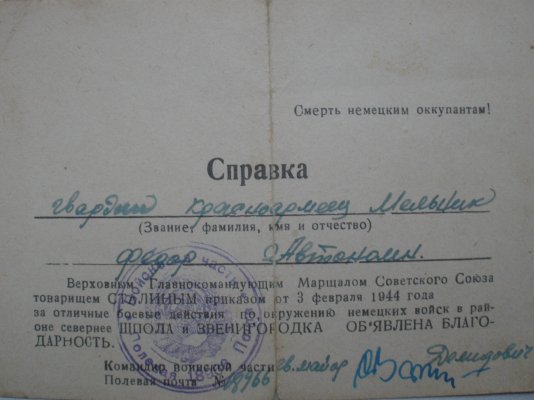 Смерть немецким оккупантам!
Справка
гвардии красноармеец Мельник
(Звание, фамилия, имя и отчество)
Федор Автоном.
Верховным Главнокомандующим Маршалом Советского Союза
товарищем СТАЛИНЫМ приказом от 3 февраля 1944 года
за отличные боевые действия по окружению немецких войск в рай-
оне севернее ШПОЛА и ЗВЕНИГОРОДКА ОБ'ЯВЛЕНА БЛАГО-
ДАРНОСТЬ.
Командир воинской части гв. майор Давидович
Полевая почта №